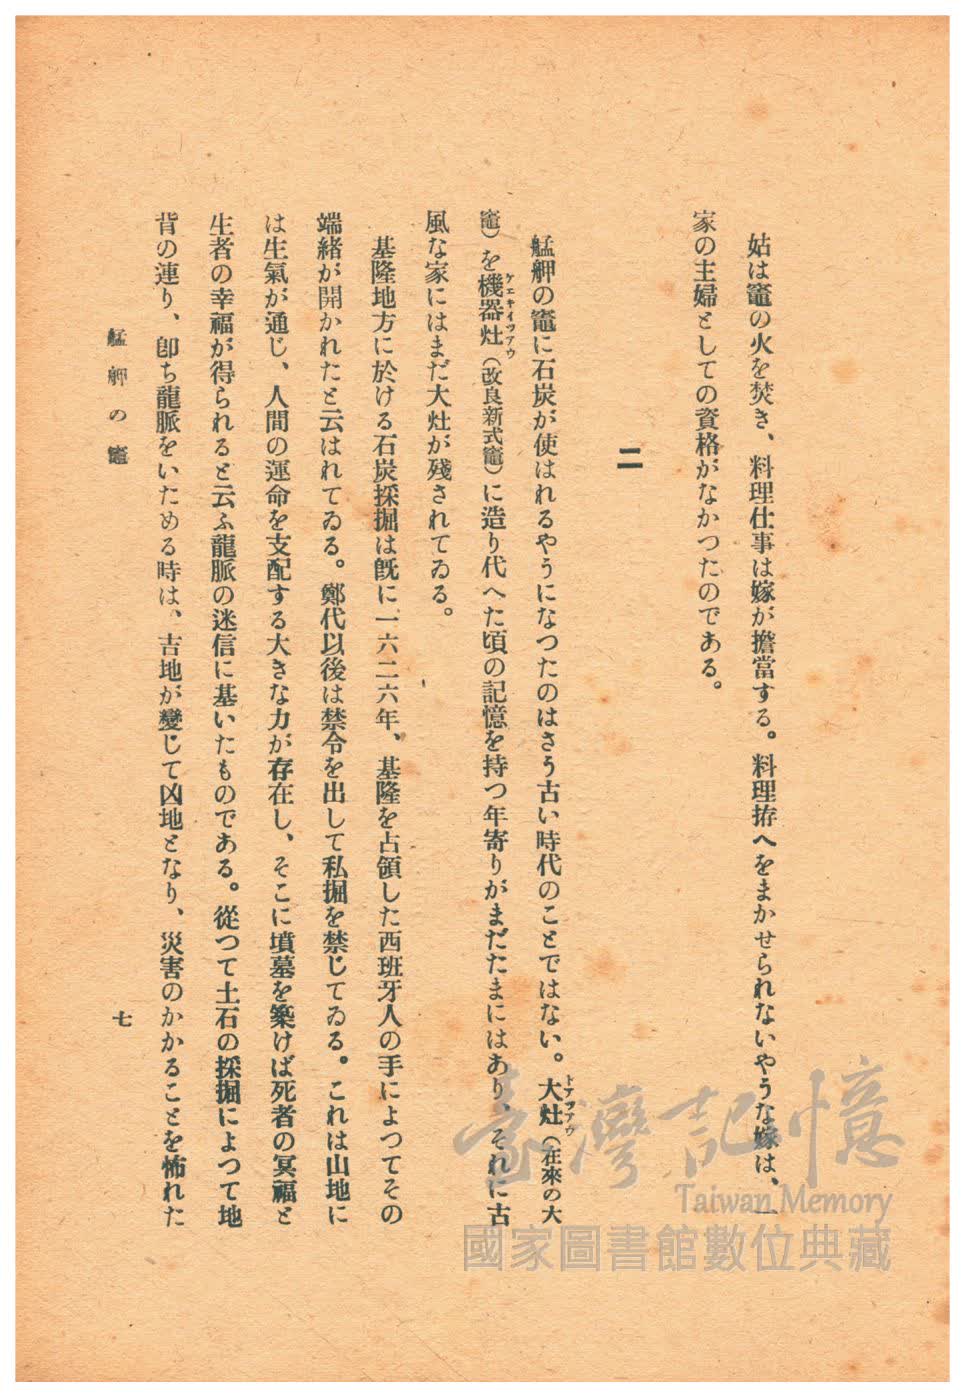 姑は竈の火を焚き、料理仕事は嫁が擔當する。料理拵へをまかせられないやうな嫁は、一
家の主婦としての資格がなかつたのである。
二
艋舺の竈に石炭が使はれるやうになつたのはさう古い時代のことではない。大灶（在來の大
竈）を機器灶（改良新式竈）に造り代へた頃の記憶を持つ年寄りがまだたまにはあり、それに古
風な家にはまだ大灶が殘されてゐる。
基隆地方に於ける石炭採掘は既に一六二六年、基隆を占領した西班牙人の手によつてその
端緒が開かれたと云はれてゐる。鄭代以後は禁令を出して私掘を禁じてゐる。これは山地に
は生氣が通じ、人間の運命を支配する大きな力が存在し、そこに墳墓を築けば死者の冥福と
生者の幸福が得られると云ふ龍脈の迷信に基いたものである。從つて土石の採掘によつて地
背の連り、卽ち龍脈をいためる時は、吉地が變じて凶地となり、災害のかかることを怖れた
艋舺の竈
七
臺灣記憶
Taiwan Memory
國家圖書館數位典藏